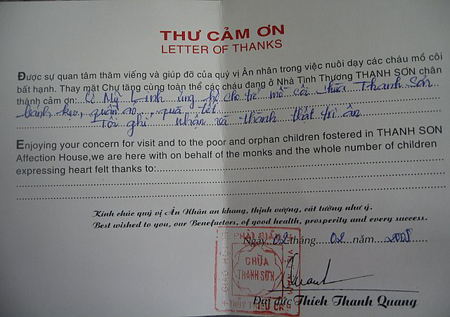 THƯ CẢM ƠN
LETTER OF THANKS
Được sự quan tâm thăm viếng và giúp đỡ của quý vị Ân nhân trong việc nuôi dạy các cháu mồ côi
bất hạnh. Thay mặt Chư tăng cùng toàn thể các cháu đang ở Nhà Tình Thương THANH SƠN chân
thành cảm ơn: Mỹ Linh ủng hộ cho trẻ mồ côi chùa Thanh Sơn
bánh kẹo, quần áo, quà tết.
Tôi ghi nhận và thành thật tri ân
Enjoying your concern for visit and to the poor and orphan children fostered in THANH SON
Affection House,we are here with on behalf of the monks and the whole number of children
expressing heart felt thanks to:
Kính chúc quý vị Ân Nhân an khang, thịnh vượng, cát tường như ý.
Best wished to you, our Benefactors, of good health, prosperity and every success.
Ngày 02 tháng 02 năm 2008
PHẬT GIÁO
CHÙA
THANH SƠN
Đại đức Thích Thanh Quang